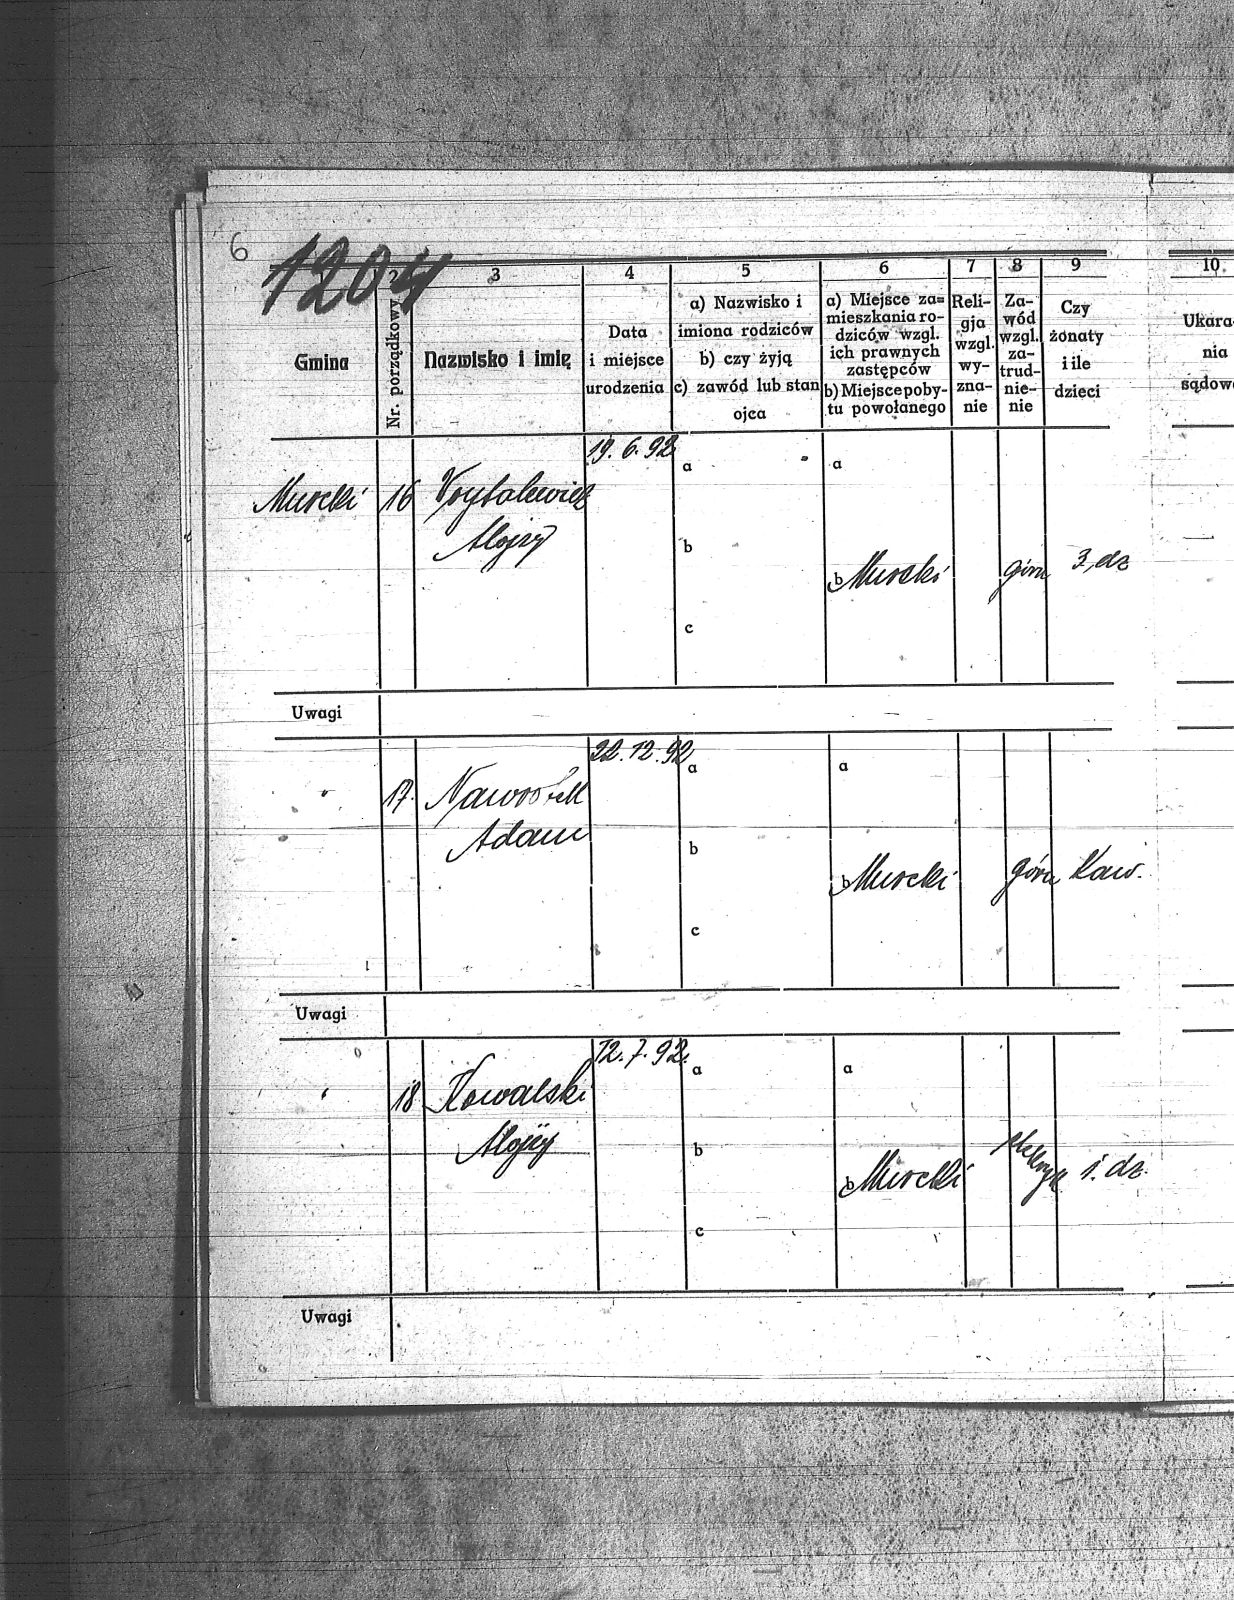 6
1204
2 3 4 5 6 7 8 9 10
Gmina
Nr. porządkowy
Nazwisko i imię
Data
i miejsce
urodzenia
a) Nazwisko i
imiona rodziców
b) czy żyją
c) zawód lub stan
ojca
a) Miejsce za=
mieszkania ro-
dziców wzgl.
ich prawnych
zastępców
b) Miejsce poby-
tu powołanego
Reli-
gja
wzgl.
wy-
zna-
nie
Za-
wód
wzgl.
za-
trud-
nie-
nie
Czy
żonaty
i ile
dzieci
Ukara-
nia
sądow
19. 6. 92
a a
Murcki 16
Alojzy
b
b Murcki górn 3, dz
c
Uwagi
22. 12. 92
a a
" 17.
Adam
b
b Murcki górn Kaw.
c
Uwagi
12. 7. 92.
a a
" 18 Kowalski
Alojzy
b
b Murcki 1. dz
c
Uwagi